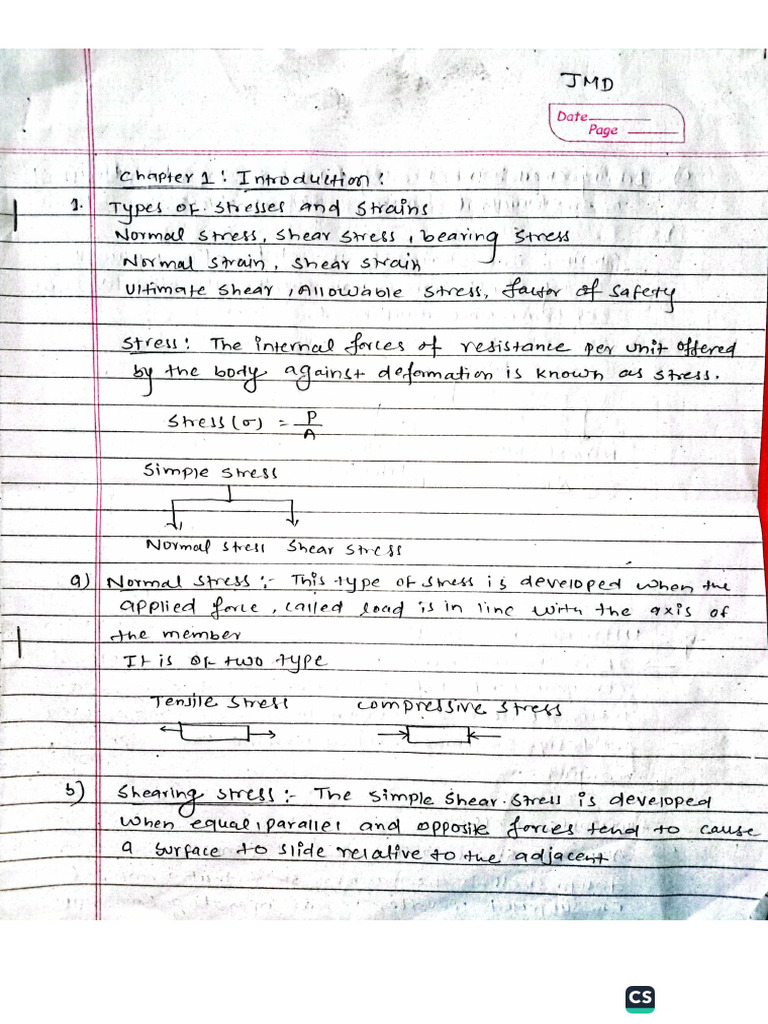 JMD
Date
Page
Chapter 1: Introduction:
1. Types of stresses and strains
Normal stress, shear stress, bearing stress
Normal strain, shear strain
Ultimate shear, Allowable stress, factor of safety
Stress: The internal forces of resistance per unit offered
by the body against deformation is known as stress.
Stress (σ) = P
A
Simple stress
Normal stress Shear stress
a) Normal stress:- This type of stress is developed when the
applied force, called load is in line with the axis of
the member
It is of two type
Tensile stress compressive stress
b) Shearing stress:- The simple shear stress is developed
when equal, parallel and opposite forces tend to cause
a surface to slide relative to the adjacent
CS